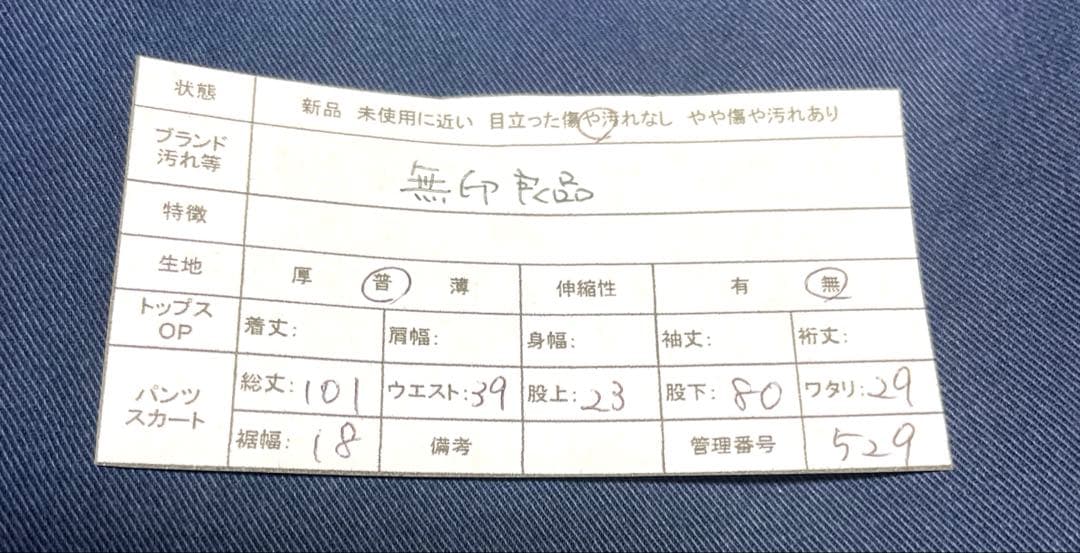 状態 新品 未使用に近い 目立った傷や汚れなし やや傷や汚れあり
ブランド
汚れ等 無印良品
特徴
生地 厚 普 薄 伸縮性 有 無
トップス
OP 着丈: 肩幅: 身幅: 袖丈: 裄丈:
パンツ
スカート 総丈:101 ウエスト:39 股上:23 股下:80 ワタリ:29
裾幅:18 備考 管理番号 529